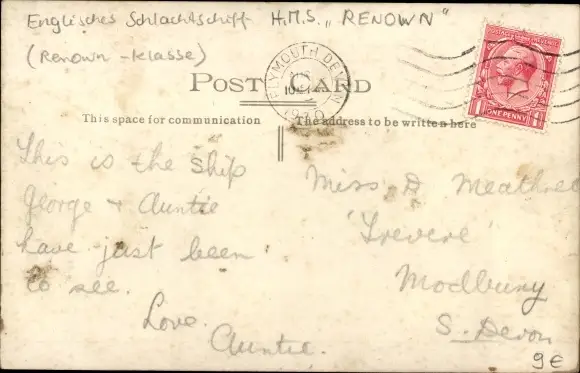 Englisches Schlachtschiff H.M.S. „RENOWN"
(Renown-Klasse)
POST CARD
PLYMOUTH DEVON
1930
ONE PENNY
This space for communication
The address to be written here
This is the ship
George + Auntie
have just been
to see.
Love.
Auntie.
Miss D
'Trevere'
Modbury
S. Devon
9€